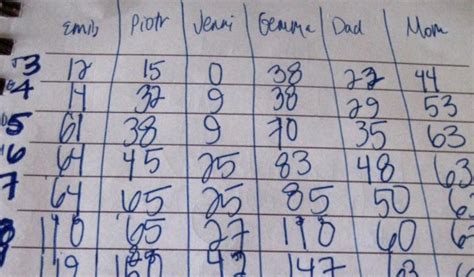 Emils Piotr Jenni Gemma Dad Mom
3 12 15 0 38 22 44
4 14 32 9 38 29 53
5 61 38 9 70 35 63
6 64 45 25 83 48 63
7 64 65 25 85 50
8 110 65 27 110 60
119 147